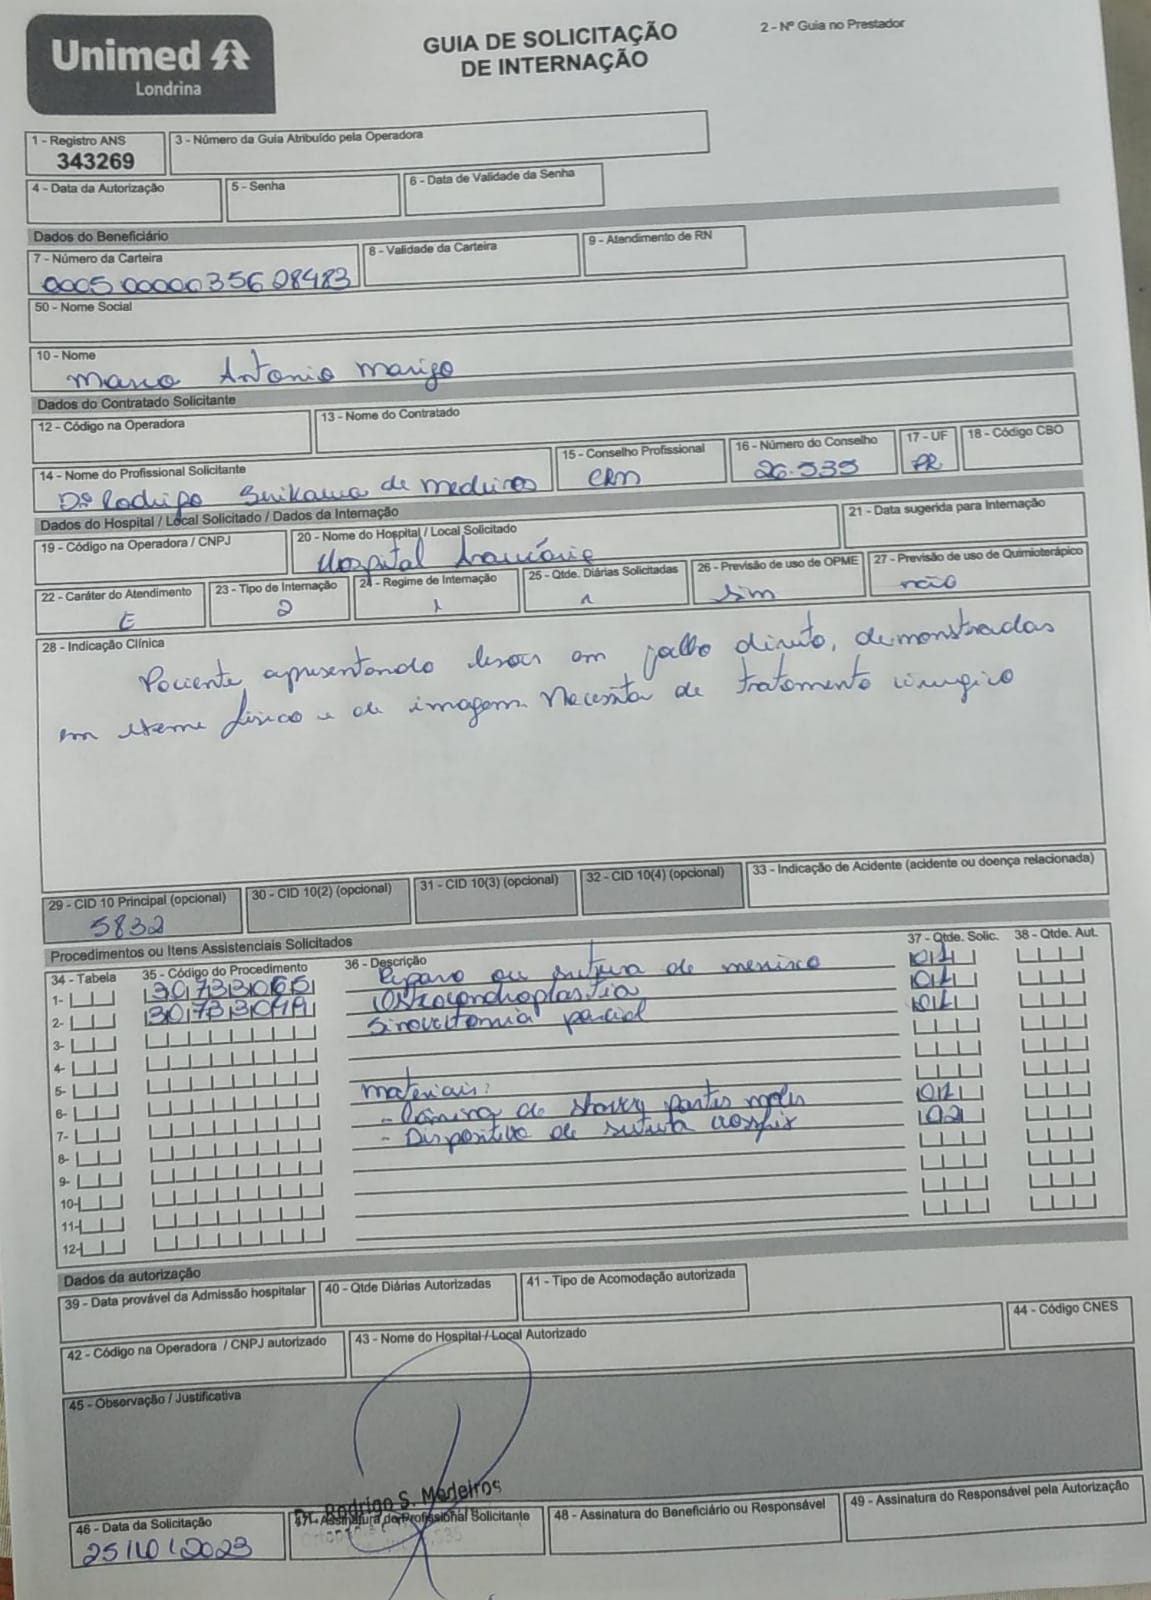 Unimed
Londrina
GUIA DE SOLICITAÇÃO
DE INTERNAÇÃO
2 - Nº Guia no Prestador
1 - Registro ANS
343269
3 - Número da Guia Atribuído pela Operadora
4 - Data da Autorização
5 - Senha
6 - Data de Validade da Senha
Dados do Beneficiário
7 - Número da Carteira
00050000035608483
8 - Validade da Carteira
9 - Atendimento de RN
50 - Nome Social
10 - Nome
Marco Antonio Marigo
Dados do Contratado Solicitante
12 - Código na Operadora
13 - Nome do Contratado
14 - Nome do Profissional Solicitante
Dr Rodrigo de Medeiros
15 - Conselho Profissional
CRM
16 - Número do Conselho
26.535
17 - UF
PR
18 - Código CBO
Dados do Hospital / Local Solicitado / Dados da Internação
19 - Código na Operadora / CNPJ
20 - Nome do Hospital / Local Solicitado
Hospital Araucária
21 - Data sugerida para Internação
22 - Caráter do Atendimento
E
23 - Tipo de Internação
2
24 - Regime de Internação
1
25 - Qtde. Diárias Solicitadas
1
26 - Previsão de uso de OPME
Sim
27 - Previsão de uso de Quimioterápico
não
28 - Indicação Clínica
Paciente apresentando lesões em joelho direito, demonstradas
em exame físico e de imagem. Necessita de tratamento cirurgico
29 - CID 10 Principal (opcional)
S832
30 - CID 10(2) (opcional)
31 - CID 10(3) (opcional)
32 - CID 10(4) (opcional)
33 - Indicação de Acidente (acidente ou doença relacionada)
Procedimentos ou Itens Assistenciais Solicitados
34 - Tabela
35 - Código do Procedimento
36 - Descrição
37 - Qtde. Solic.
38 - Qtde. Aut.
1- 30733065 Reparo ou sutura de menisco 01
2- Osteocondroplastia 01
3- Sinovectomia parcial 01
4-
5-
6- Materiais:
7- - Lâmina de shaver partes moles 01
8- - Dispositivo de sutura 02
9-
10-
11-
12-
Dados da autorização
39 - Data provável da Admissão hospitalar
40 - Qtde Diárias Autorizadas
41 - Tipo de Acomodação autorizada
42 - Código na Operadora / CNPJ autorizado
43 - Nome do Hospital / Local Autorizado
44 - Código CNES
45 - Observação / Justificativa
Dr. Rodrigo S. Medeiros
46 - Data da Solicitação
25/10/2023
47 - Assinatura do Profissional Solicitante
48 - Assinatura do Beneficiário ou Responsável
49 - Assinatura do Responsável pela Autorização